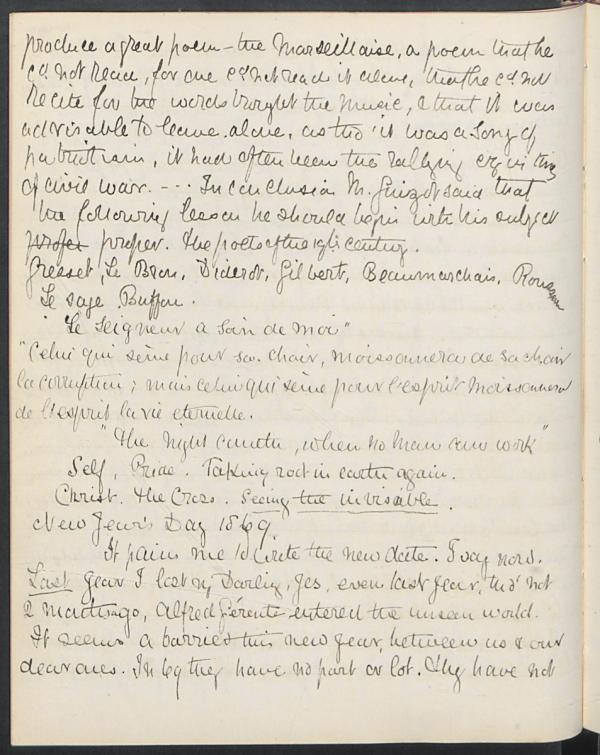 produce a great poem – the Marseillaise, a poem that he
cd. not read, for one cd. not read it alone, that he cd. not
recite for the words brought the music, & that it was
advisable to leave alone, as tho' it was a song of
patriotism, it had often been the rallying cry in times
of civil war. --- In conclusion M. Guizot said that
the following lesson he should begin with his subject
proper. The poets of the 19th century.
Gresset, Le Brun, Diderot, Gilbert, Beaumarchais, Rousseau
Le Sage Buffon.
"Le Seigneur a soin de moi"
"Celui qui sème pour sa chair, moissonnera de sa chair
la corruption; mais celui qui sème pour l'esprit moissonnera
de l'esprit la vie eternelle.
"The night cometh, when no man can work"
Self. Pride. Taking root in earth again.
Christ. The Cross. Seeing the invisable.
New Year's Day 1869.
It pains me to write the new date. I say nors.
Last year I lost my Darling, yes, even last year, tho' not
2 months ago, Alfred Gérente entered the unseen world.
It seems a barrier this new year, between us & our
dear ones. In 69 they have no part or lot. They have not